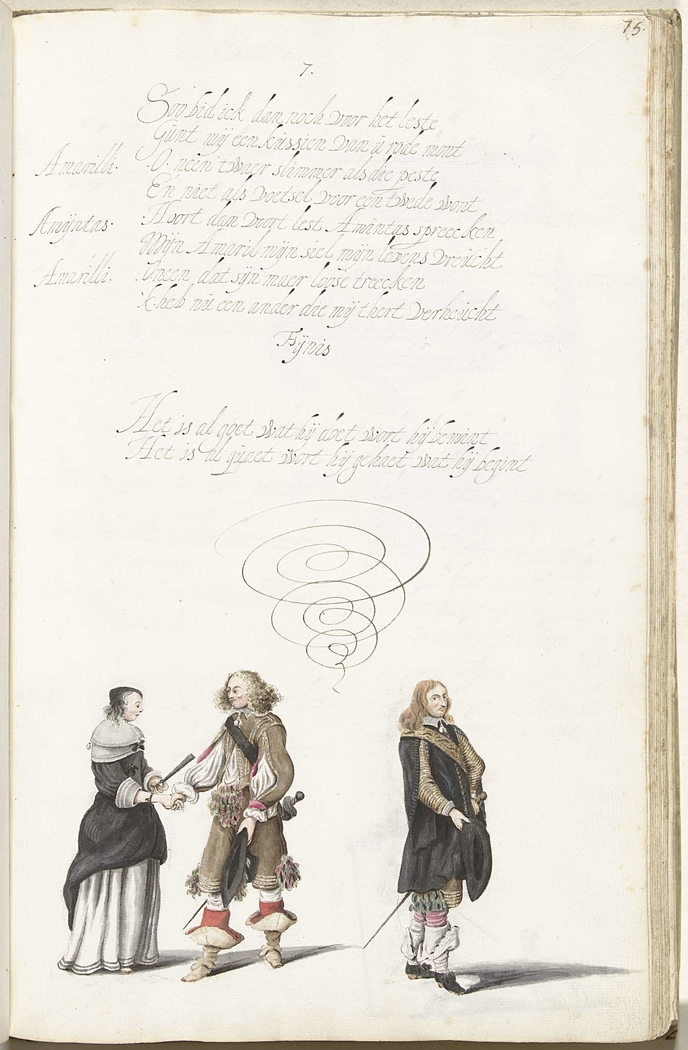 75.
7.
Soo bid ick dan noch voor het leste
Gunt mij een kussien van u rode mont
Amarilli. O neen 't waer slimmer als die peste
En niet als voetsel voor een twede wont
Amÿntas. Hoort dan voort lest Amintas spreecken
Mijn Amaril mijn siel mijn levens vreucht
Amarilli. O neen dat sijn maer loose treecken
k heb nu een ander die mij t hert verheucht
Fÿnis
Het is al goet wat hij doet wort hij bemint
Het is al quaet wort hij gehaet wat hij begint